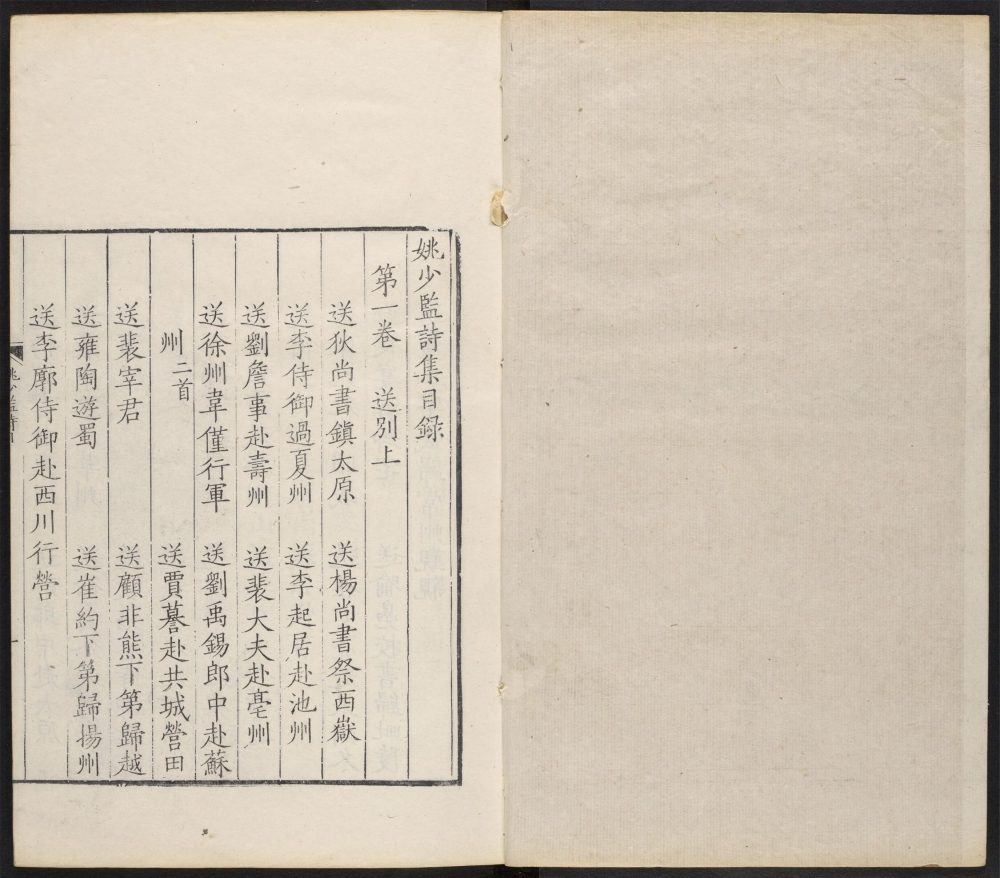 姚少監詩集目錄
第一卷 送別上
送狄尚書鎮太原 送楊尚書祭西嶽
送李侍御過夏州 送李起居赴池州
送劉詹事赴壽州 送裴大夫赴亳州
送徐州韋僅行軍 送劉禹錫郎中赴蘇
州二首 送賈謩赴共城營田
送裴宰君 送顧非熊下第歸越
送雍陶遊蜀 送崔約下第歸揚州
送李廓侍御赴西川行營
姚少監詩目
一